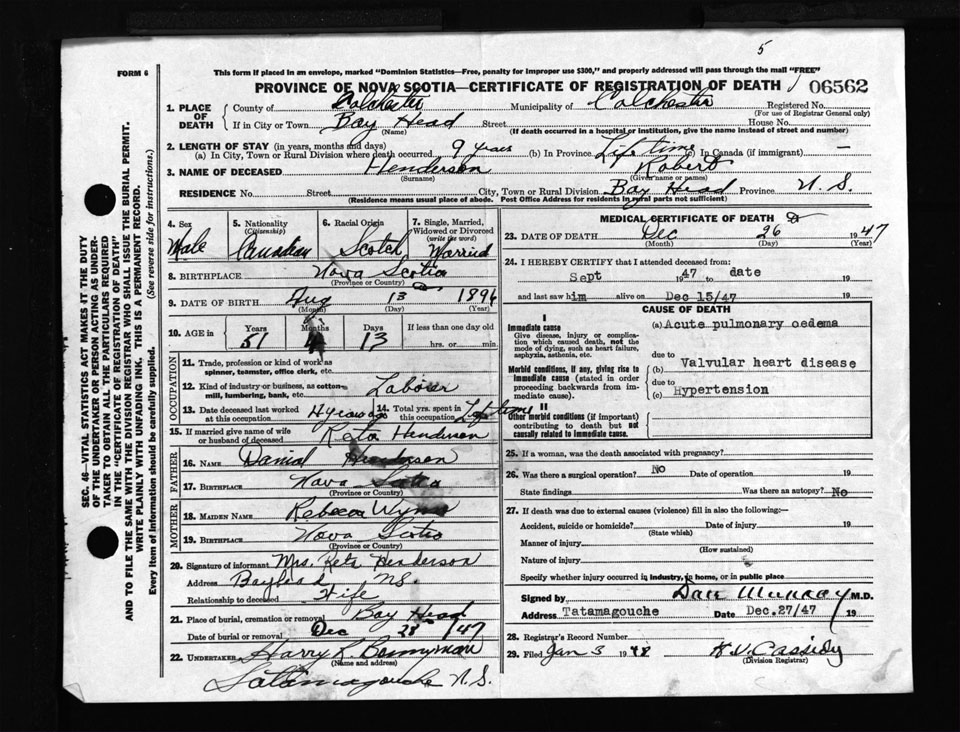 5
FORM 6
This form if placed in an envelope, marked "Dominion Statistics—Free, penalty for improper use $300," and properly addressed will pass through the mail "FREE"
PROVINCE OF NOVA SCOTIA—CERTIFICATE OF REGISTRATION OF DEATH 06562
1. PLACE OF DEATH County of Colchester Municipality of Colchester Registered No.
(For use of Registrar General only)
If in City or Town Bay Head Street House No.
(Name) (If death occurred in a hospital or institution, give the name instead of street and number)
2. LENGTH OF STAY (in years, months and days)
(a) In City, Town or Rural Division where death occurred 9 years (b) In Province Lifetime (c) In Canada (if immigrant) —
3. NAME OF DECEASED Henderson Robert
(Surname) (Given name or names)
RESIDENCE No. Street City, Town or Rural Division Bay Head Province N. S.
(Residence means usual place of abode. Post Office Address for residents in rural parts not sufficient)
4. Sex Male
5. Nationality (Citizenship) Canadian
6. Racial Origin Scotch
7. Single, Married, Widowed or Divorced (write the word) Married
8. BIRTHPLACE Nova Scotia
(Province or Country)
9. DATE OF BIRTH Aug 13 1896
(Month) (Day) (Year)
10. AGE in Years Months Days If less than one day old
51 4 13 hrs. or min.
OCCUPATION
11. Trade, profession or kind of work as spinner, teamster, office clerk, etc.
12. Kind of industry or business, as cotton-mill, lumbering, bank, etc. Laborer
13. Date deceased last worked at this occupation
14. Total yrs. spent in this occupation Lifetime
15. If married give name of wife or husband of deceased Reta Henderson
FATHER
16. NAME Danial Henderson
17. BIRTHPLACE Nova Scotia
(Province or Country)
MOTHER
18. MAIDEN NAME Rebecca Wynn
19. BIRTHPLACE Nova Scotia
(Province or Country)
20. Signature of informant Mrs. Reta Henderson
Address Bayhead NS.
Relationship to deceased Wife
21. Place of burial, cremation or removal Bay Head
Date of burial or removal Dec 28 /47
22. UNDERTAKER Harry K. Bonnyman
(Name and address)
Tatamagouche N. S.
MEDICAL CERTIFICATE OF DEATH
23. DATE OF DEATH Dec 26 1947
(Month) (Day) (Year)
24. I HEREBY CERTIFY that I attended deceased from:
Sept 1947 to date 19
and last saw him alive on Dec 15/47 19
CAUSE OF DEATH
I
Immediate cause
Give disease, injury or complication which caused death, not the mode of dying, such as heart failure, asphyxia, asthenia, etc.
(a) Acute pulmonary oedema
due to
Morbid conditions, if any, giving rise to immediate cause (stated in order proceeding backwards from immediate cause).
(b) Valvular heart disease
due to
(c) Hypertension
II
Other morbid conditions (if important) contributing to death but not causally related to immediate cause.
25. If a woman, was the death associated with pregnancy?
26. Was there a surgical operation? No Date of operation 19
State findings Was there an autopsy? No
27. If death was due to external causes (violence) fill in also the following:—
Accident, suicide or homicide? Date of injury 19
(State which)
Manner of injury
(How sustained)
Nature of injury
Specify whether injury occurred in industry, in home, or in public place
Signed by Dan Murray M.D.
Address Tatamagouche Date Dec.27/47 19
28. Registrar's Record Number
29. Filed Jan 3 1948 H.V. Cassidy
(Division Registrar)
SEC. 46—VITAL STATISTICS ACT MAKES IT THE DUTY
OF THE UNDERTAKER OR PERSON ACTING AS UNDER-
TAKER TO OBTAIN ALL THE PARTICULARS REQUIRED
IN THE "CERTIFICATE OF REGISTRATION OF DEATH"
AND TO FILE THE SAME WITH THE DIVISION REGISTRAR WHO SHALL ISSUE THE BURIAL PERMIT.
WRITE PLAINLY WITH UNFADING INK. THIS IS A PERMANENT RECORD.
Every item of information should be carefully supplied. (See reverse side for instructions.)